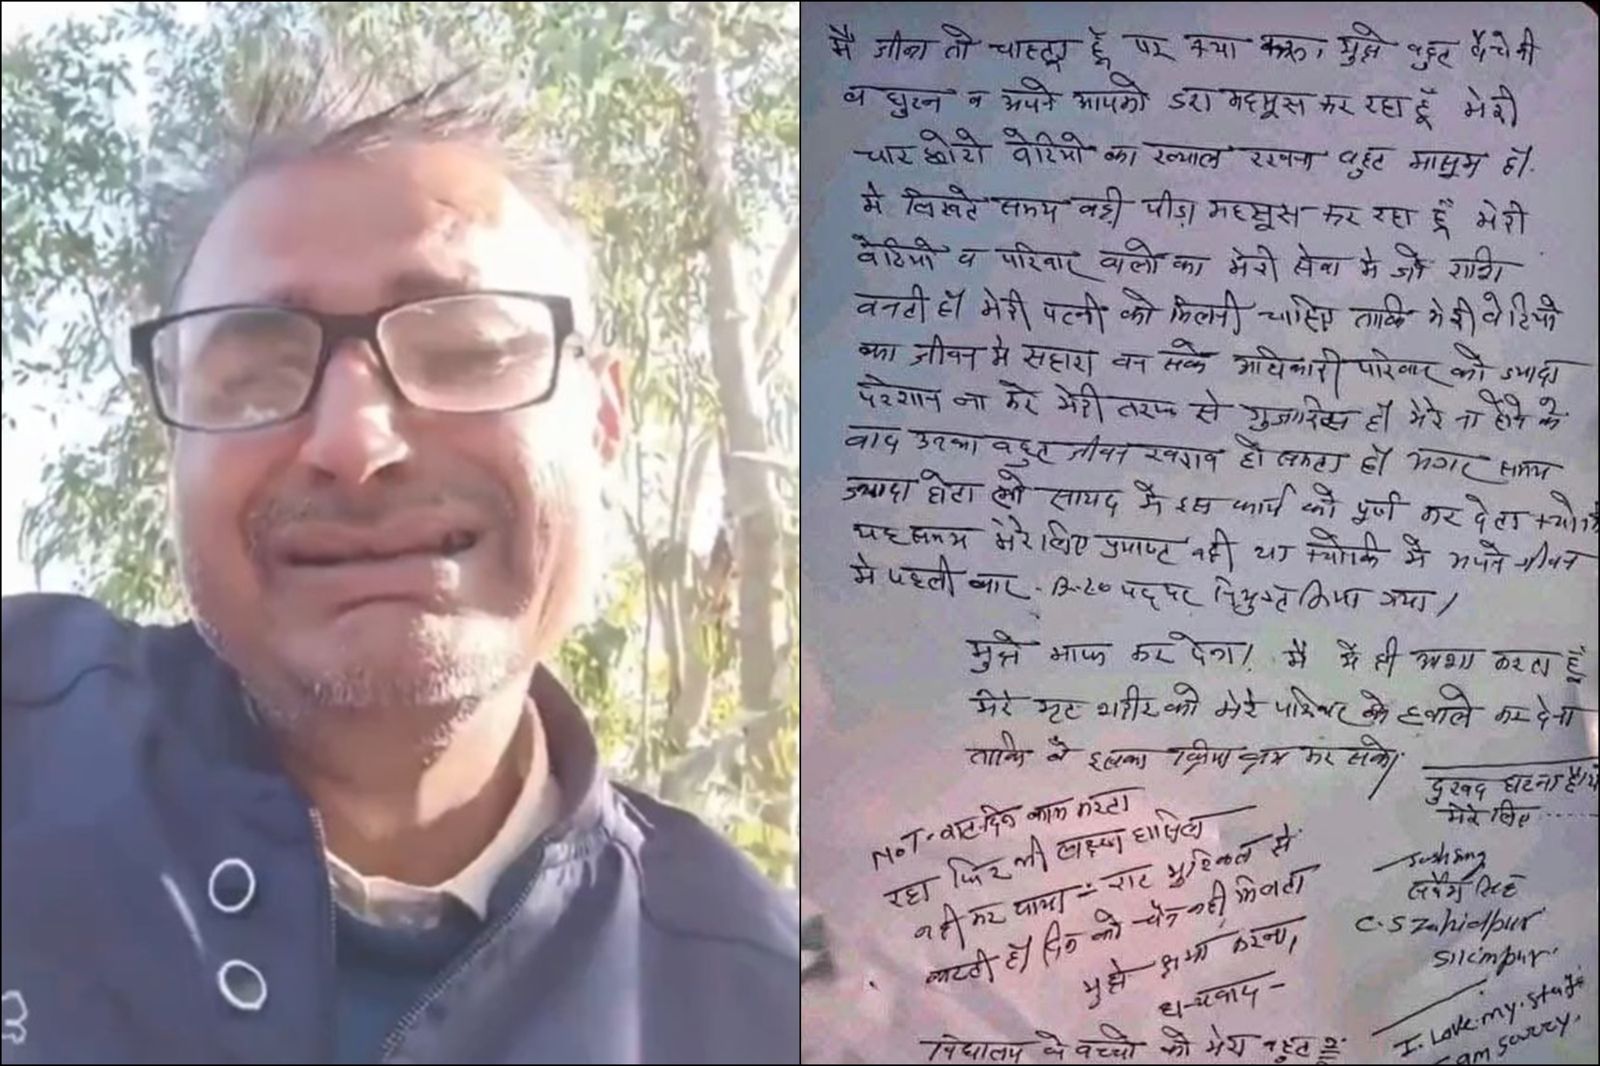 मै जीना तो चाहता हूँ पर क्या करू, मुझे बहुत बैचेनी
व घुटन व अपने आपको डरा महसूस कर रहा हूँ मेरी
चार छोटी बेटियो का ख्याल रखना बहुत मासूम हैं.
मे लिखते समय बड़ी पीड़ा महसूस कर रहा हूँ मेरी
बेटियो व परिवार वालो का मेरी सेवा मे जो राशि
बनती हैं मेरी पत्नी को मिलनी चाहिए ताकि मेरी बेटियो
का जीवन मे सहारा बन सके अधिकारी परिवार को ज्यादा
परेशान ना करे मेरी तरफ से गुजारिस हैं मेरे ना होने के
बाद उनका बहुत जीवन खराब हो सकता हैं अगर समय
ज्यादा होता तो सायद मैं इस कार्य को पूर्ण कर देता
यह समय मेरे लिए प्रयाप्त नही था क्योकि मे अपने जीवन
मे पहली बार पद पर नियुक्त किया गया /
मुझे माफ कर देना। मै ही आशा करता हूँ
मेरे मृत शरीर को मेरे परिवार के हवाले कर देना
ताकि वे इसका क्रिया कर सके।
दुखद घटना है
मेरे लिए .....
N.T- रात-दिन काम करता
रहा फिर भी लक्ष्य हासिल
नही कर पाया- रात मुश्किल से
कटती हैं दिन को चैन नही मिलता
मुझे क्षमा करना,
धन्यवाद -
सर्वेश सिंह
C.S Zahidpur
विद्यालय के बच्चो को मेरा बहुत
I. Love. my. stage
am sorry.